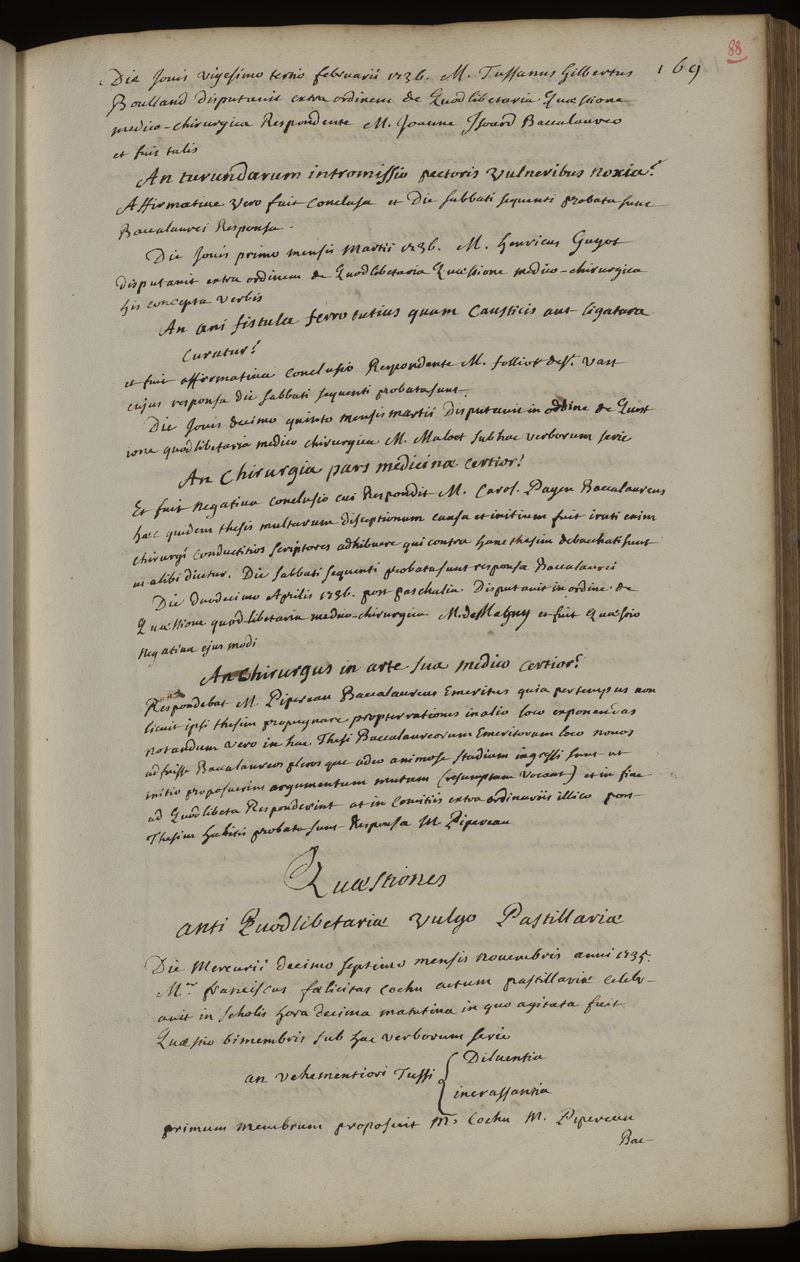 88
169
Die Jovis vigesimo tertio februarii 1736. M. Tussanus Gilbertus
Boulland disputavit extra ordinem de Quodlibetaria Quæstione
medico-chirurgica Respondente M. Joanne Isoard Baccalaureo
et fuit talis
An turundarum intromissio pectoris vulneribus noxia?
Affirmative vero fuit conclusa et Die sabbati sequenti probata sunt
Baccalaurei Responsa.
Die Jovis primo mensis Martii 1736. M. Henricus Guyot
disputavit extra ordinem de Quodlibetaria Quæstione medico-chirurgica
his concepta verbis
An ani fistula ferro tutius quam Causticis aut ligatura
curatur?
et fuit affirmativa conclusio Respondente M. folliot de St. Vast
cujus responsa die sabbati sequenti probata sunt.
Die Jovis decimo quinto mensis martii Disputavit in ordine de Quæst
ione quodlibetaria medico chirurgica M. Maloet sub hac verborum serie
An Chirurgia pars medicinæ certior?
Et fuit negativa conclusio cui Respondit M. Carol. Payen Baccalaureus
hæc quidem thesis multarum disceptionum causa et initium fuit irati enim
chirurgi conductitios scriptores adhibuere qui contra hanc thesim debacchati sunt
ut alibi dicetur. Die sabbati sequenti probata sunt responsa Baccalaurei
Die Duodecimo Aprilis 1736. post paschalia Disputavit in ordine de
Quæstione quodlibetaria medico-chirurgica M. de Magny et fuit Quæstio
negativa ejusmodi
An Chirurgus in arte sua medico certior?
Respondebat M. Pipereau Baccalaureus Emeritus quia per tempus non
licuit ipsi thesim propugnare propter rationes in alio loco exponendas
notandum vero in hac Thesi Baccalaureorum Emeritorum loco novos
adfuisse Baccalaureos pleros que adeo animose stadium ingressi sunt ut
initio proposuerint argumentum mutum (resumptum vocant) et in fine
ad Quodlibeta Responderint at in Comitiis extra ordinariis illico post
Thesim habitis probata sunt Responsa M. Pipereau
Quæstiones
anti Quodlibetariæ vulgo Pastillariæ
Die Mercurii decimo septimo mensis novembris anni 1735.
Mr. franciscus fælicitas Cochu actum pastillariæ celebr-
avit in scholis hora decima matutina in quo agitata fuit
Quæstio bimembris sub hac verborum serie
an vehementiori Tussi { Diluentia
incrassantia
primum membrum proposuit Mr. Cochu M. Pipereau
Bac-